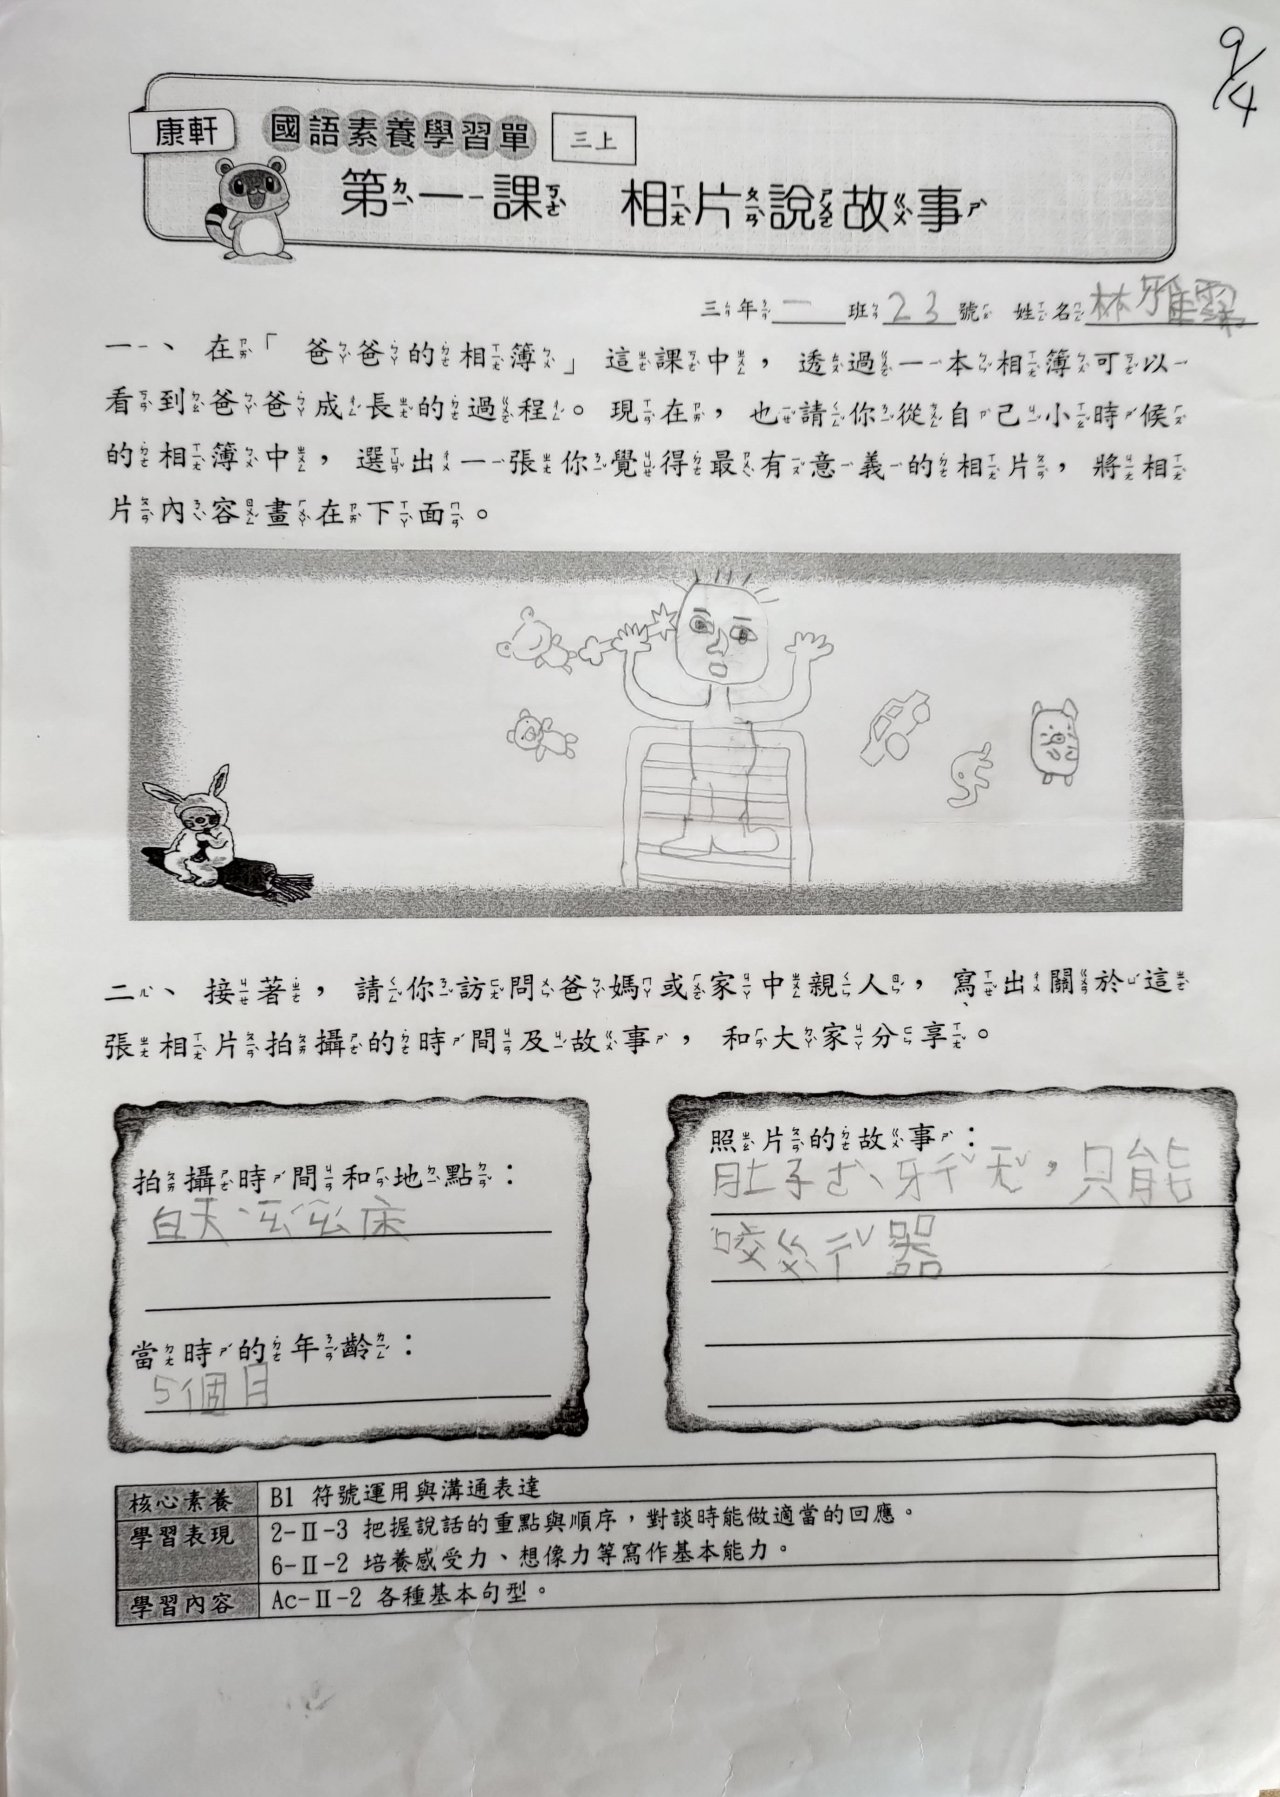 9/4
康軒 國語素養學習單 三上
第一課 相片說故事
三年一班23號 姓名林雅霏
一、在「爸爸的相簿」這課中，透過一本相簿可以
看到爸爸成長的過程。現在，也請你從自己小時候
的相簿中，選出一張你覺得最有意義的相片，將相
片內容畫在下面。
二、接著，請你訪問爸媽或家中親人，寫出關於這
張相片拍攝的時間及故事，和大家分享。
拍攝時間和地點：
白天、ㄧㄥㄦˊ床
當時的年齡：
5個月
照片的故事：
肚子ㄜˋ，只能
咬ㄍㄨˋ器
核心素養 B1 符號運用與溝通表達
學習表現 2-Ⅱ-3 把握說話的重點與順序，對談時能做適當的回應。
6-Ⅱ-2 培養感受力、想像力等寫作基本能力。
學習內容 Ac-Ⅱ-2 各種基本句型。